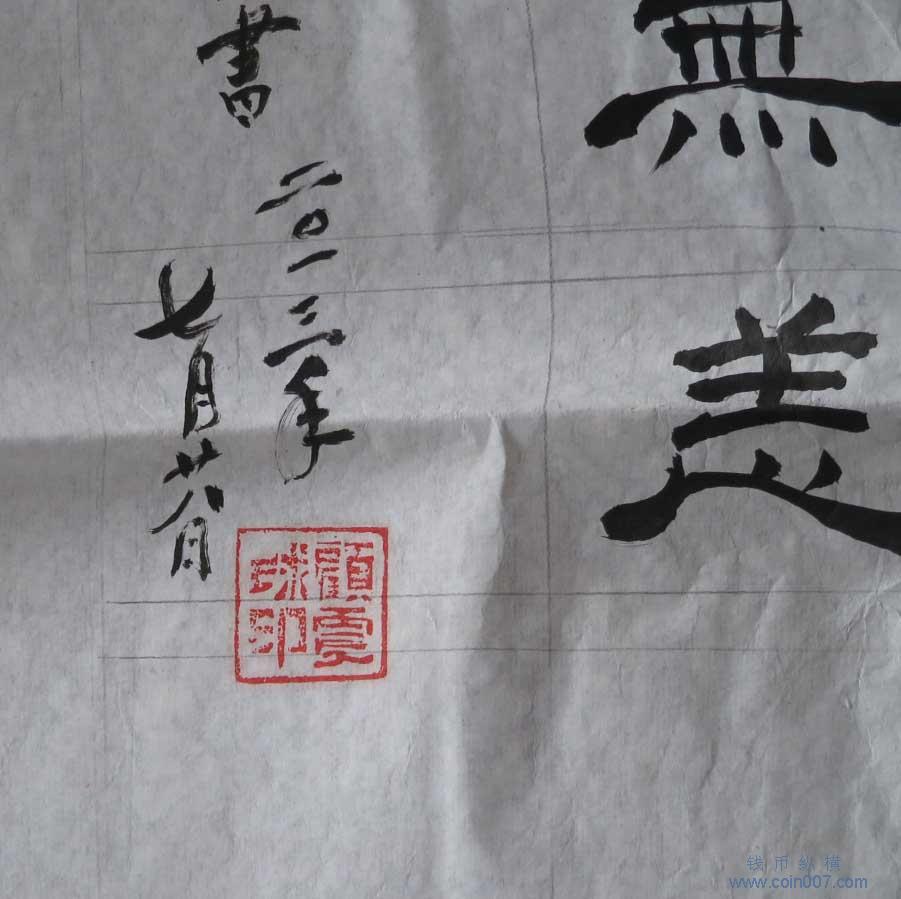 無恙
書 二〇一三年
七月廿八日
顧
印
钱币纵横
www.coin007.com